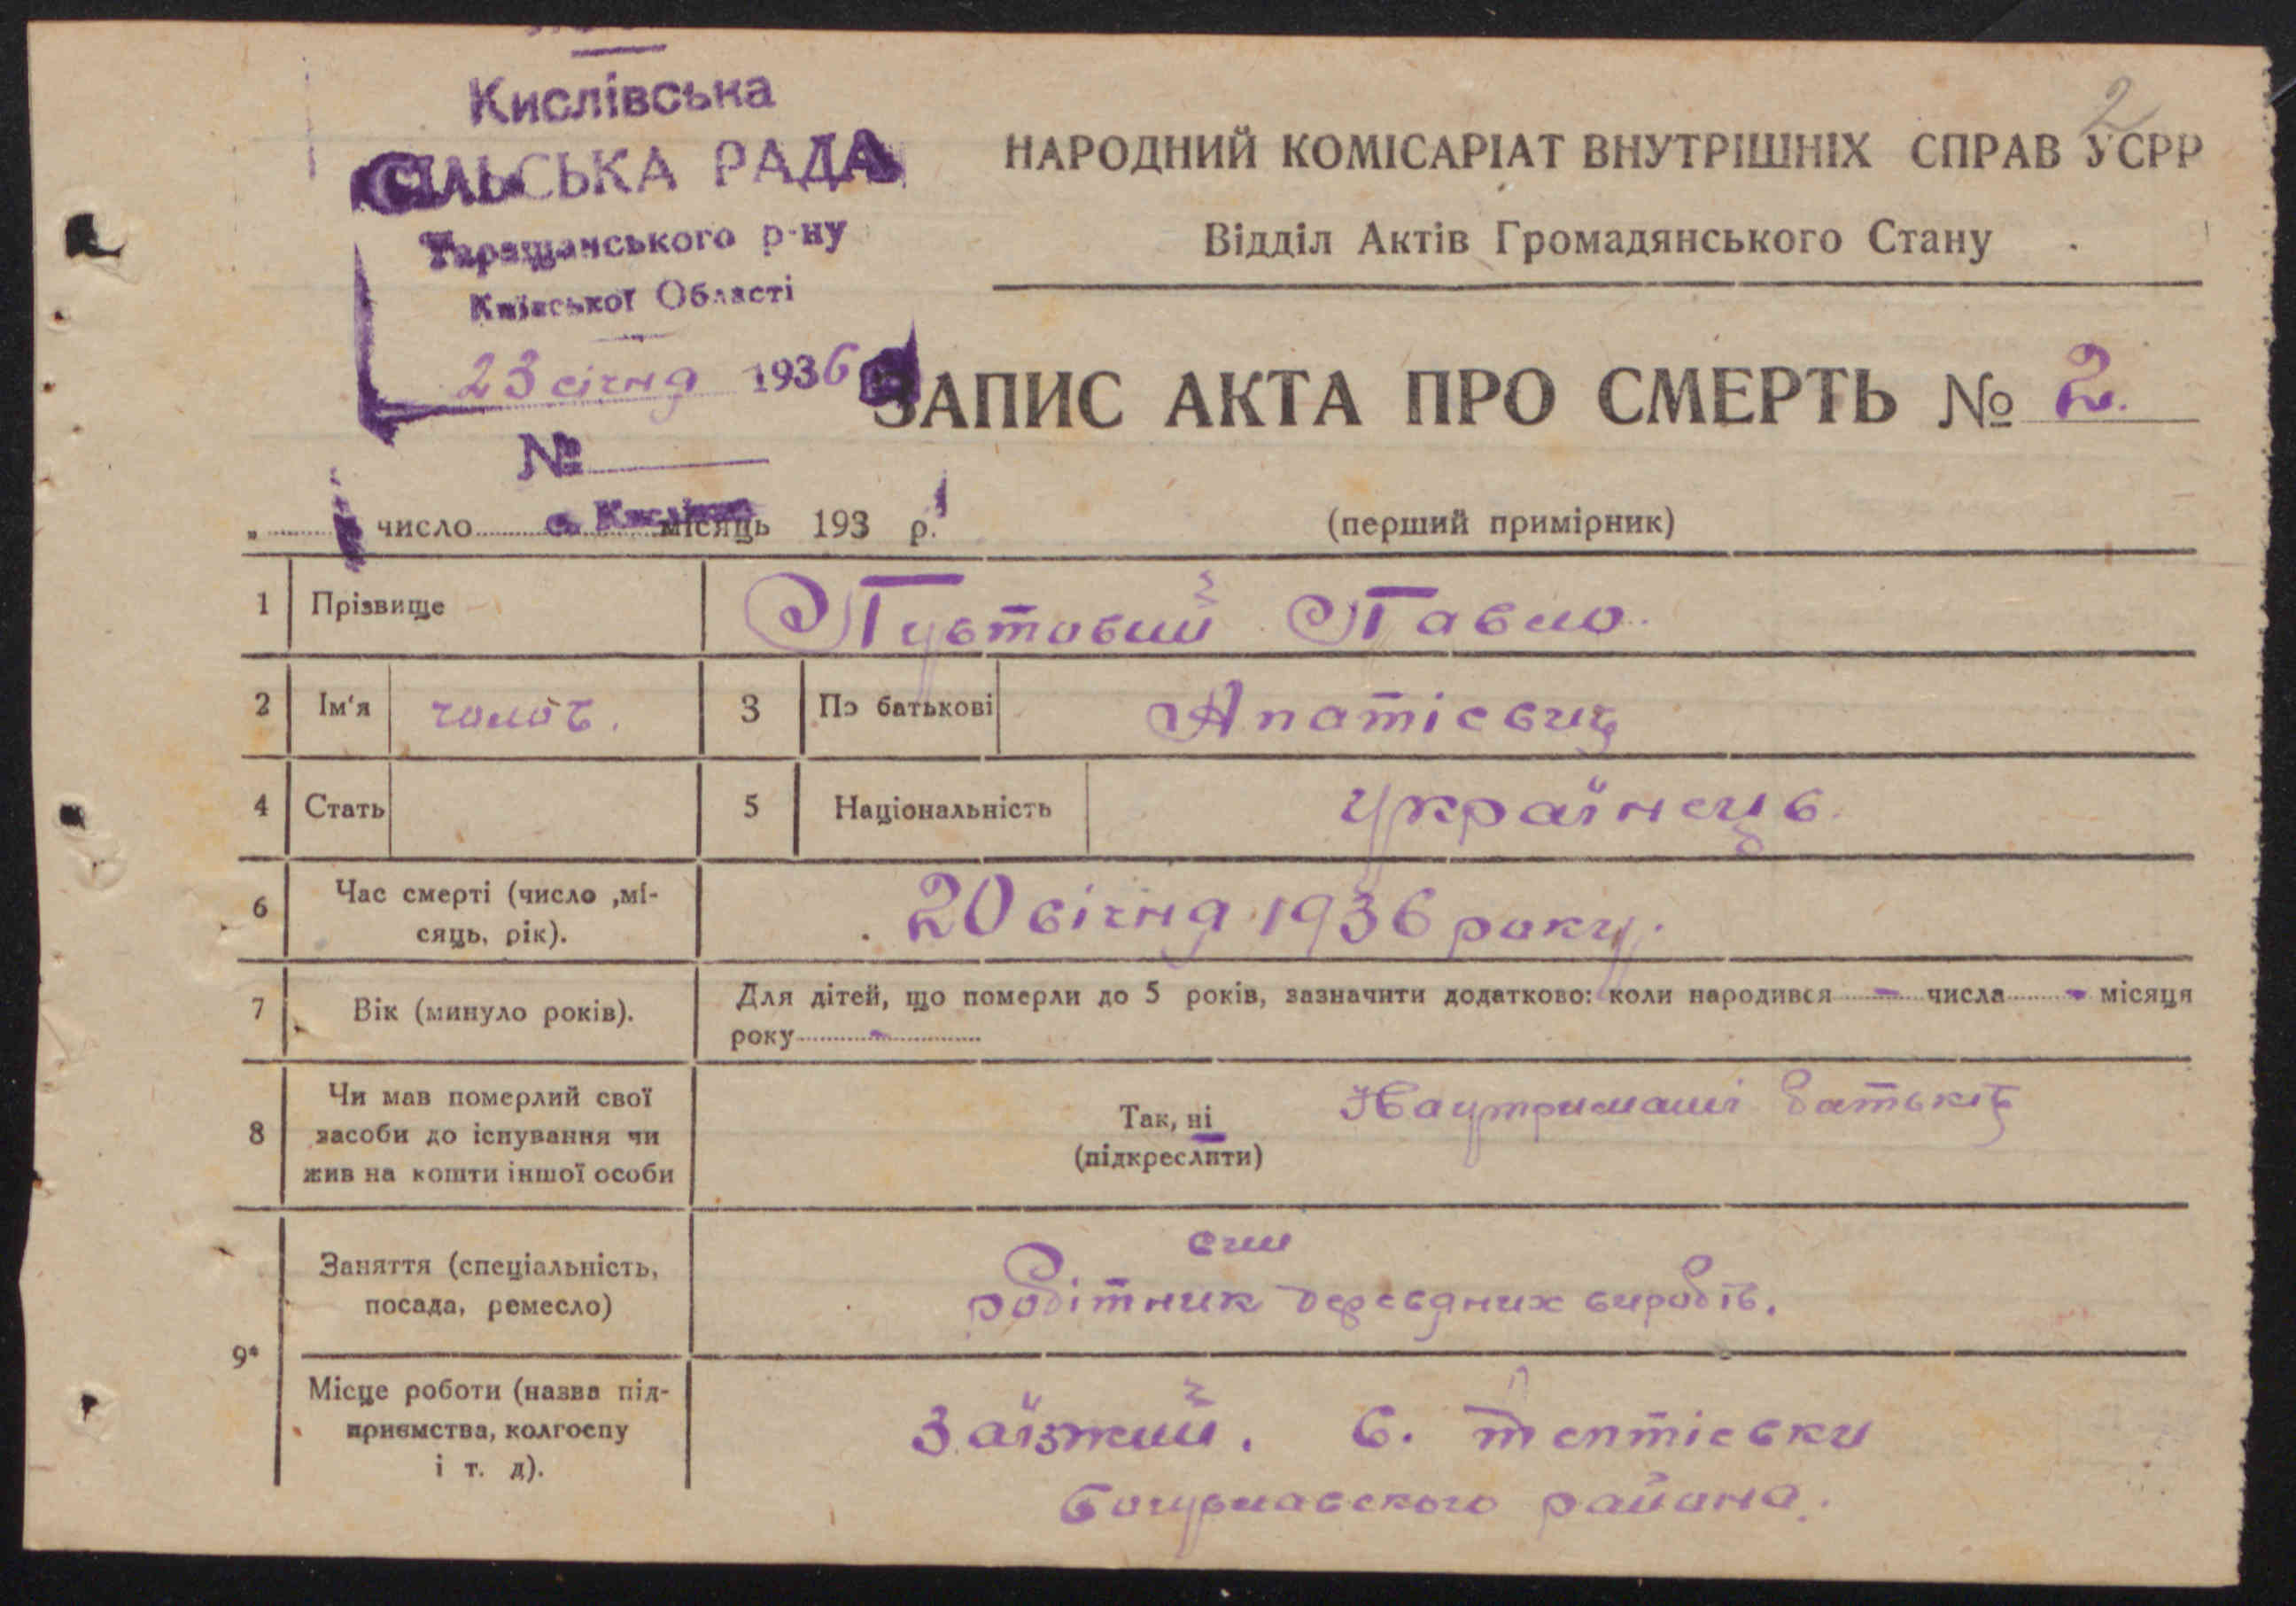 2
Кислівська
СІЛЬСЬКА РАДА
Таращанського р-ну
Київської Області
23 січня 1936
№
с. Кислівка
НАРОДНИЙ КОМІСАРІАТ ВНУТРІШНІХ СПРАВ УСРР
Відділ Актів Громадянського Стану
ЗАПИС АКТА ПРО СМЕРТЬ № 2.
„ число місяць 193 р.
(перший примірник)
1 Прізвище Пустовий Павло.
2 Ім'я чолов. 3 По батькові Апатієвич
4 Стать 5 Національність українець.
6 Час смерті (число ,мі-
сяць, рік).
20 січня 1936 року.
7 Вік (минуло років).
Для дітей, що померли до 5 років, зазначити додатково: коли народився - числа - місяця
року -
8 Чи мав померлий свої
засоби до існування чи
жив на кошти іншої особи
Так, ні
(підкреслити)
На утриманні батьків
9*
Заняття (спеціальність,
посада, ремесло)
син
робітник деревяних виробів.
Місце роботи (назва під-
приємства, колгоспу
і т. д).
Заїзжий. с. тептієвки
Богуславского района.